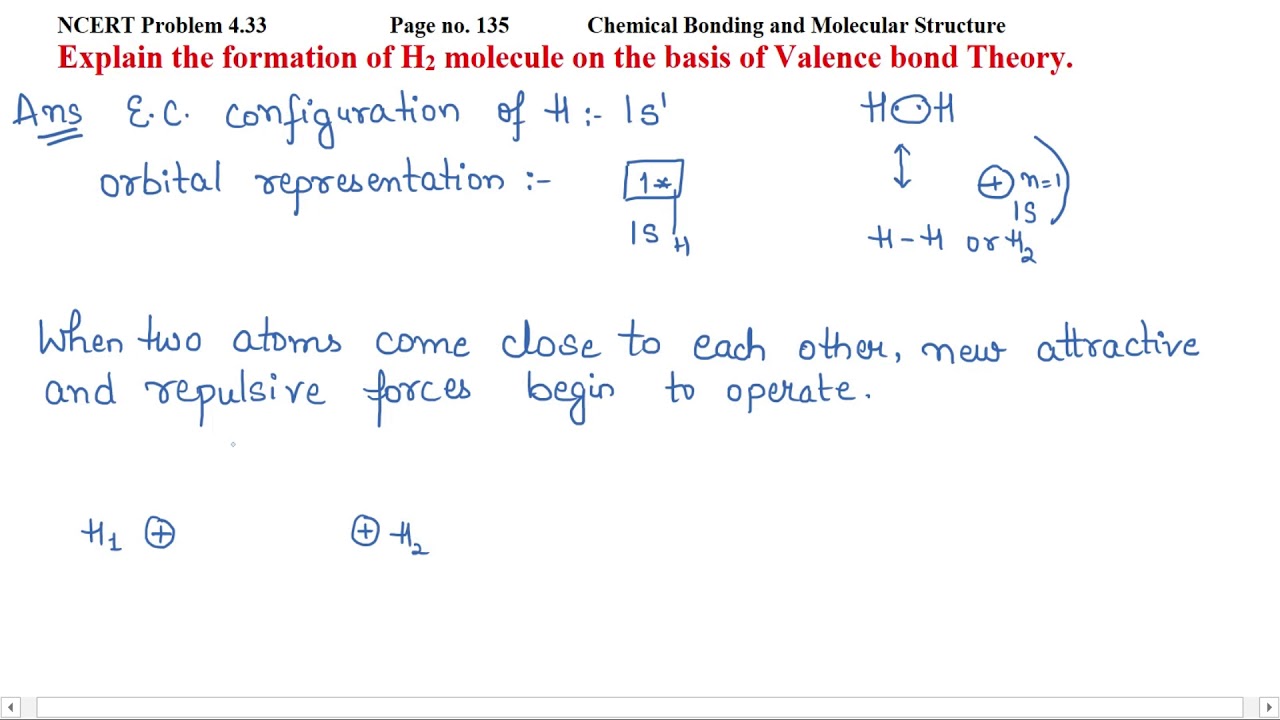 NCERT Problem 4.33 Page no. 135 Chemical Bonding and Molecular Structure
Explain the formation of H₂ molecule on the basis of Valence bond Theory.
Ans E.C. configuration of H :- 1S¹
H··H
orbital representation :- 1*
⊕ n=1
1S
1S H
H-H or H₂
When two atoms come close to each other, new attractive
and repulsive forces begin to operate.
H₁ ⊕ ⊕ H₂